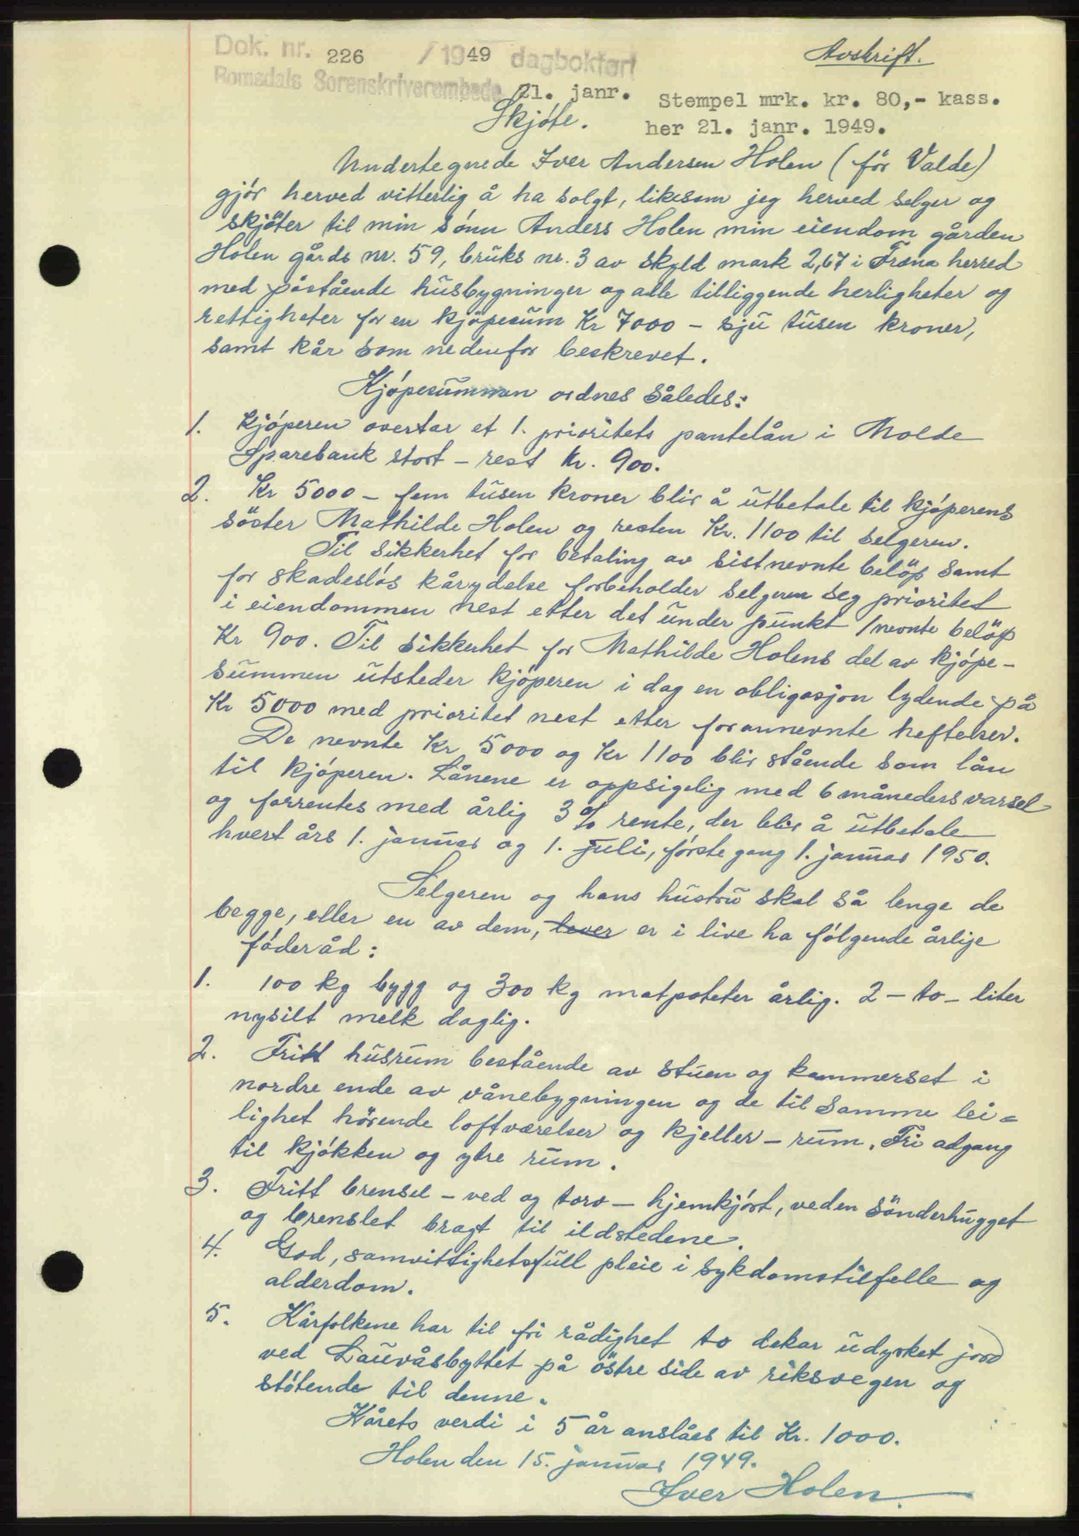 Avskrift.
Dok. nr. 226 / 1949 dagbokført
Romsdals Sorenskriverembede 21. janr.
Stempel mrk. kr. 80,- kass.
her 21. janr. 1949.
Skjøte.
Undertegnede Iver Andersen Holen (før Valde)
gjør herved vitterlig å ha solgt, likesom jeg herved selger og
skjøter til min sønn Anders Holen min eiendom gården
Holen gårds nr. 59, bruks nr. 3 av skyld mark 2,67 i Fræna herred
med påstående husbygninger og alle tilliggende herligheter og
rettigheter for en kjøpesum Kr 7000 - sju tusen kroner,
samt kår som nedenfor beskrevet.
Kjøpesummen ordnes således:
1. Kjøperen overtar et 1. prioritets pantelån i Molde
Sparebank stort - rest Kr. 900.
2. Kr 5000 - fem tusen kroner blir å utbetale til kjøperens
søster Mathilde Holen og resten Kr. 1100 til selgeren.
Til sikkerhet for betaling av sistnevnte beløp samt
for skadesløs kårydelse forbeholder selgeren seg prioritet
i eiendommen nest etter det under punkt 1 nevnte beløp
Kr 900. Til sikkerhet for Mathilde Holens del av kjøpe-
summen utsteder kjøperen i dag en obligasjon lydende på
Kr 5000 med prioritet nest etter forannevnte heftelser.
De nevnte Kr 5000 og Kr 1100 blir stående som lån
til kjøperen. Lånene er oppsigelig med 6 måneders varsel
og forrentes med årlig 3% rente, der blir å utbetale
hvert års 1. januar og 1. juli, første gang 1. januar 1950.
Selgeren og hans hustru skal så lenge de
begge, eller en av dem, lever er i live ha følgende årlije
føderåd:
1. 100 kg bygg og 300 kg matpoteter årlig. 2 - to - liter
nysilt melk daglig.
2. Fritt husrum bestående av stuen og kammerset i
nordre ende av vånebygningen og de til samme lei=
lighet hørende loftværelser og kjeller - rum. Fri adgang
til kjøkken og ytre rum.
3. Fritt brensel - ved og torv - hjemkjørt, veden sönderhugget
og brenslet bragt til ildstedene.
4. God, samvittighetsfull pleie i sykdomstilfelle og
alderdom.
5. Kårfolkene har til fri rådighet to dekar udyrket jord
ved Lauvåsbyttet på östre side av riksvegen og
støtende til denne.
Kårets verdi i 5 år anslåes til Kr. 1000.
Holen den 15. januar 1949.
Iver Holen.